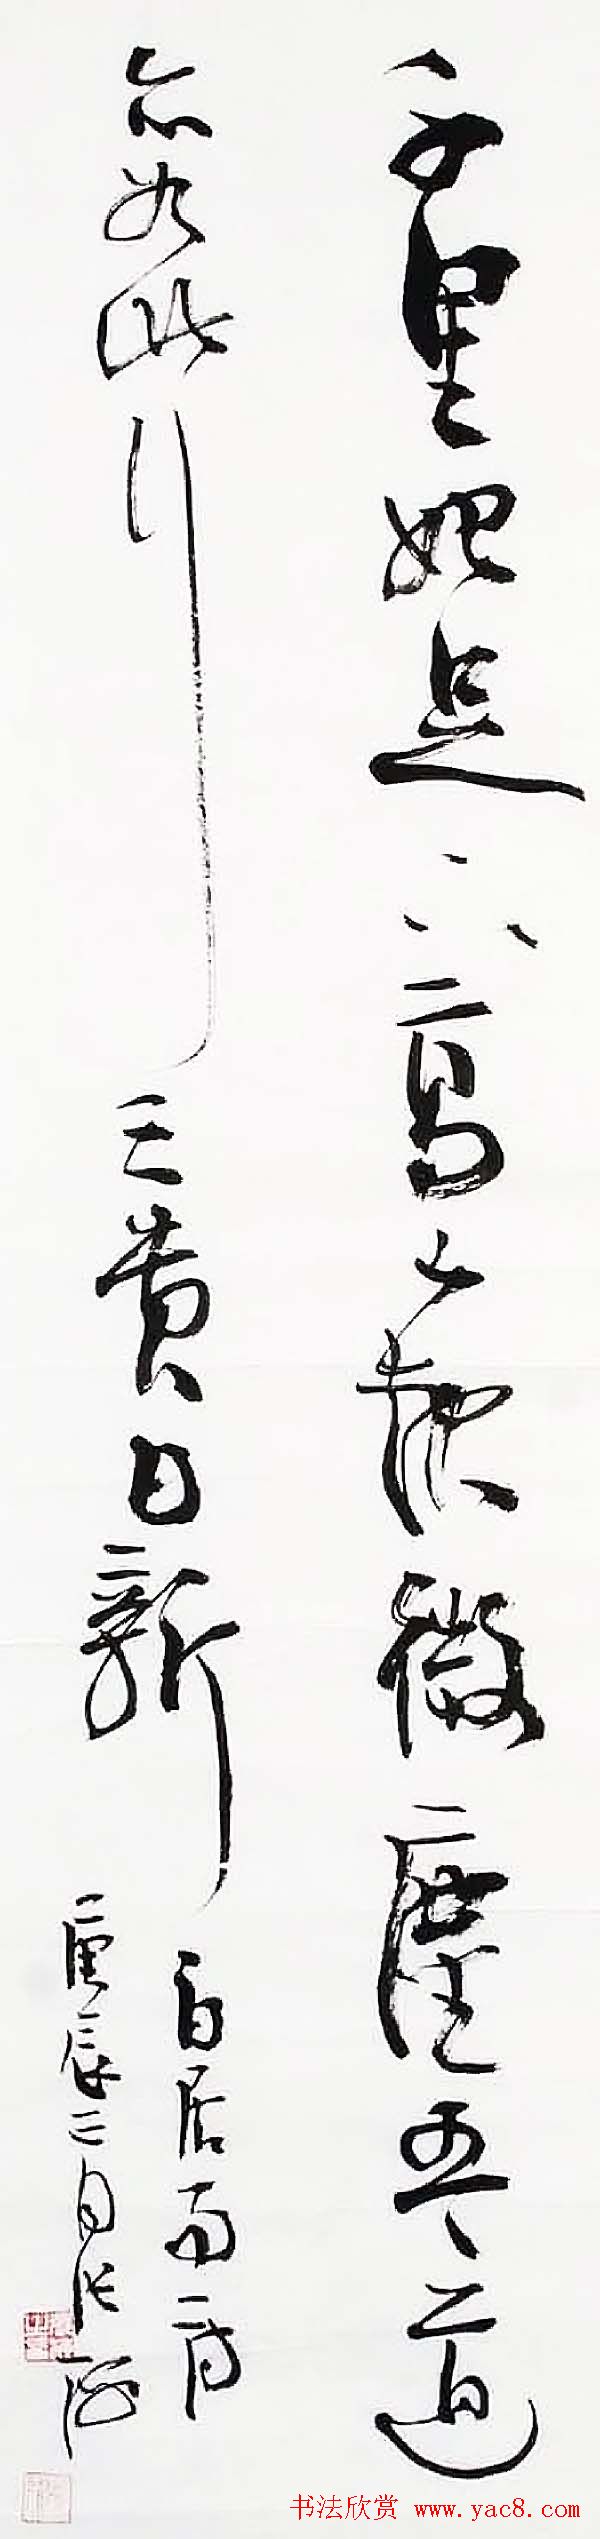 千里始足下高山起微塵吾道
亦如此行之貴日新
白居易
庚辰
书法欣赏 www.yac8.com